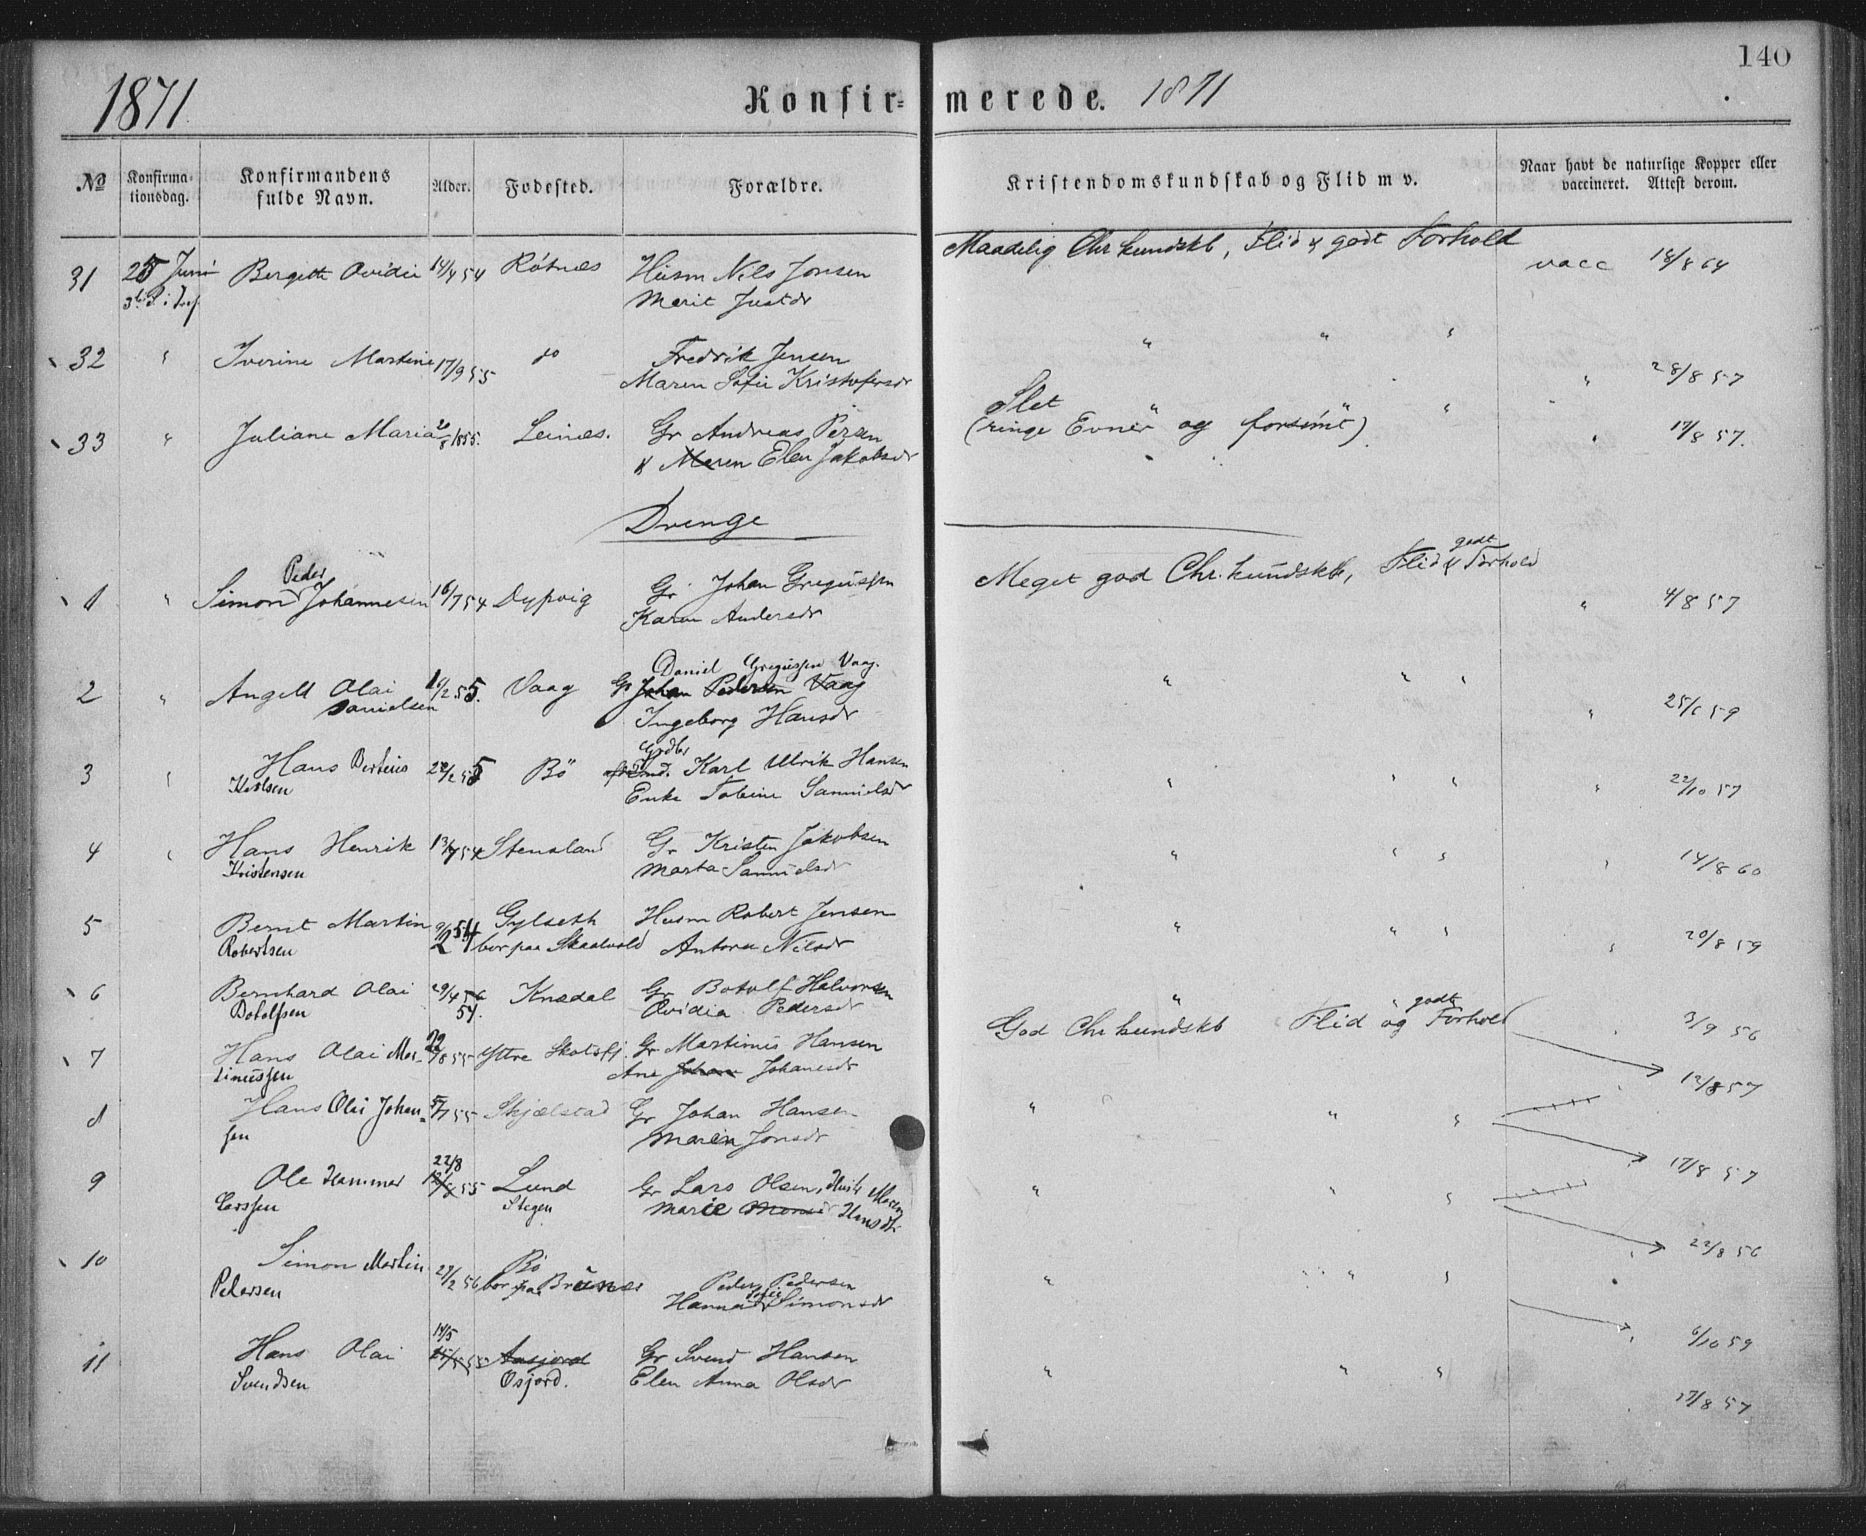 140
1871
Konfir= merede. 1871
No Konfirma- tionsdag. Konfirmandens fulde Navn. Alder. Fodested. Forældre. Kristendomskundskab og Flid m v. Naar havt de naturlige Kopper eller vaccineret. Attest derom.
31 25 Juni Bergette Ovidie 14/4 54 Rötnæs Husm Nils Jonsen Maadelig Chr kundskb, Flid & godt Forhold vacc 18/8 64
Merit Justdr
32 " Iverine Martine 17/9 55 do Fredrik Jensen " " "
Maren Sofie Kristofersdr " 28/8 57
33 " Juliane Maria 2/8 1855. Leines. Gr Andreas Persen Slet " " "
& Maren Elen Jakobsdr (ringe Evner og forsömt) " 17/8 57.
Drenge
1 " Simon Peder Johannesen 16/7 54 Dypvig Gr Johan Gregussen Meget god Chr. kundskb, Flid & godt Forhold
Karen Andersdr " 4/8 57
Daniel Gregussen Vaag.
2 " Angell Olai 16/2 55. Vaag Gr Johan Pedersen Vaag " " "
Danielsen Ingeborg Hansdr " 25/6 59
Grdbr
3 " Hans Bertius 22/2 55 Bö Karl Ulrik Hansen " " "
Karlsen Enke Tobine Samuelsdr " 22/10 57
4 " Hans Henrik 13/7 54 Stensland Gr Kristen Jakobsen " " "
Kristensen Marta Samuelsdr " 14/8 60
5 Bernt Martin 9/2 54 Gylseth Husm Robert Jensen " " "
Robertsen bor paa Skaalvold Antora Nilsdr " 20/8 59
6 Bernhard Olai 29/4 56 Knædal Gr Botolf Halvorsen " " "
Botolfsen 54. Ovidia Pedersdr 3/9 56
7 Hans Olai Mar- 22/8 55 Yttre Skotsfj. Gr Martinus Hansen God Chr kundskb Flid og godt Forhold
tinussen Ane Johan Johanesdr 12/8 57
8 Hans Olai Johan- 5/7 55 Skjælstad Gr Johan Hansen " " "
sen Maren Jonsdr 17/8 57
22/8
9 Ole Hammer 12/8 55 Lund Gr Lars Olsen, Hust Maren " " "
Larssen Stegen Marie Monsdr Hansdr 22/8 56
10 Simon Martin 29/2 56 Bö
Pedersen bor paa Brunes Peder Pedersen " " "
Hanna Sofie Simonsdr 6/10 59
14/5
11 Hans Olai 25/5 55 Aasjord Gr Svend Hansen " " "
Svendsen Osjord. Elen Anna Olsdr 17/8 57